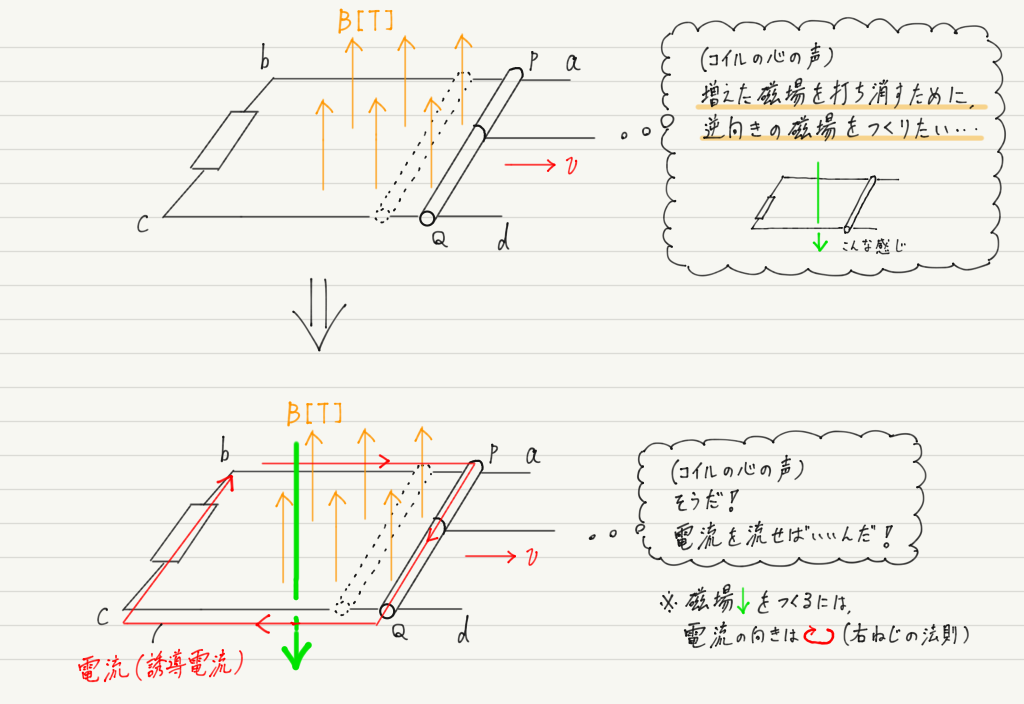 B[T]
b
P
a
v
C
Q
d
(コイルの心の声)
増えた磁場を打ち消すために,
逆向きの磁場をつくりたい…
こんな感じ
B[T]
b
P
a
v
C
Q
d
電流(誘導電流)
(コイルの心の声)
そうだ!
電流を流せばいいんだ!
※ 磁場↓をつくるには,
電流の向きは (右ねじの法則)